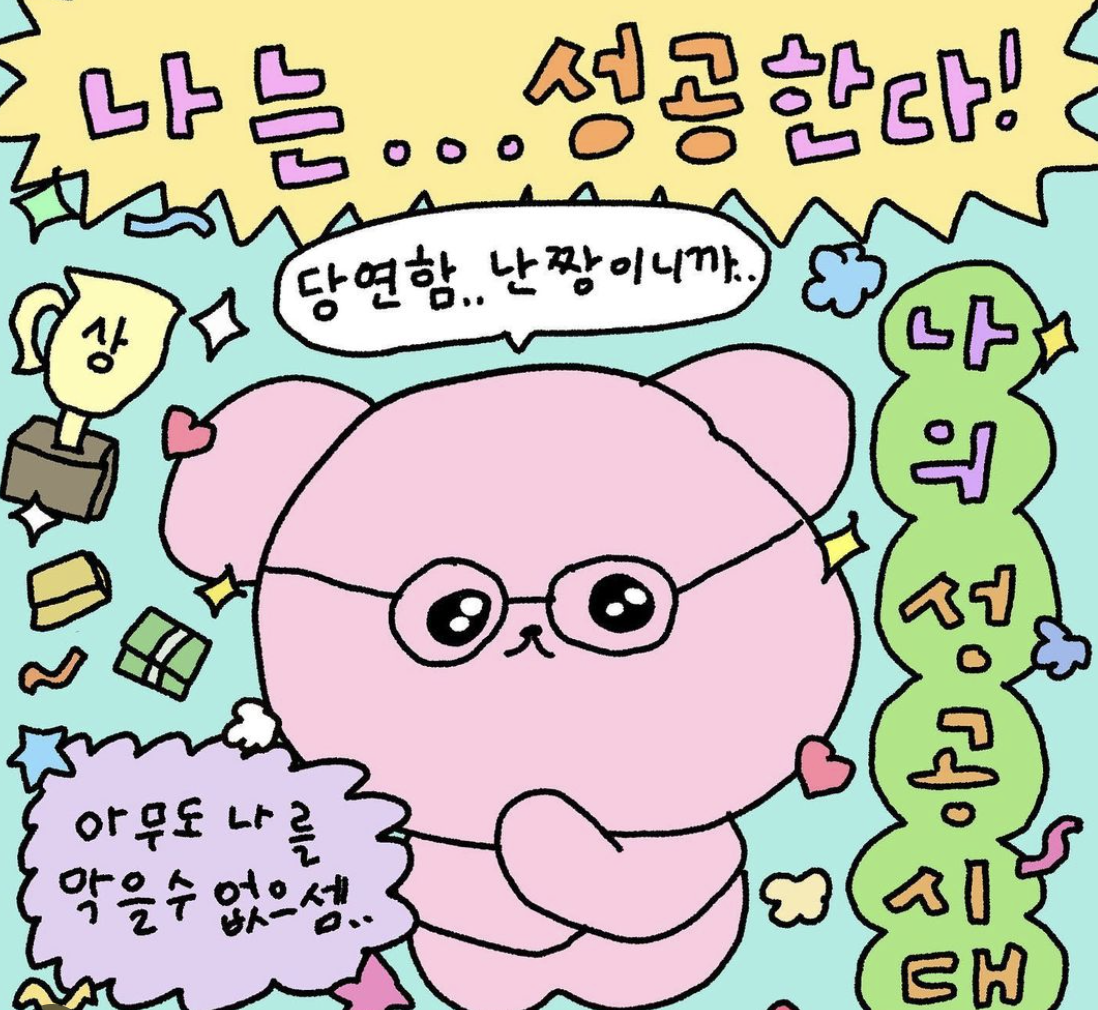 나는...성공한다!
당연함.. 난짱이니까..
상
나의 성공시대
아무도 나를
막을수 없으셈..